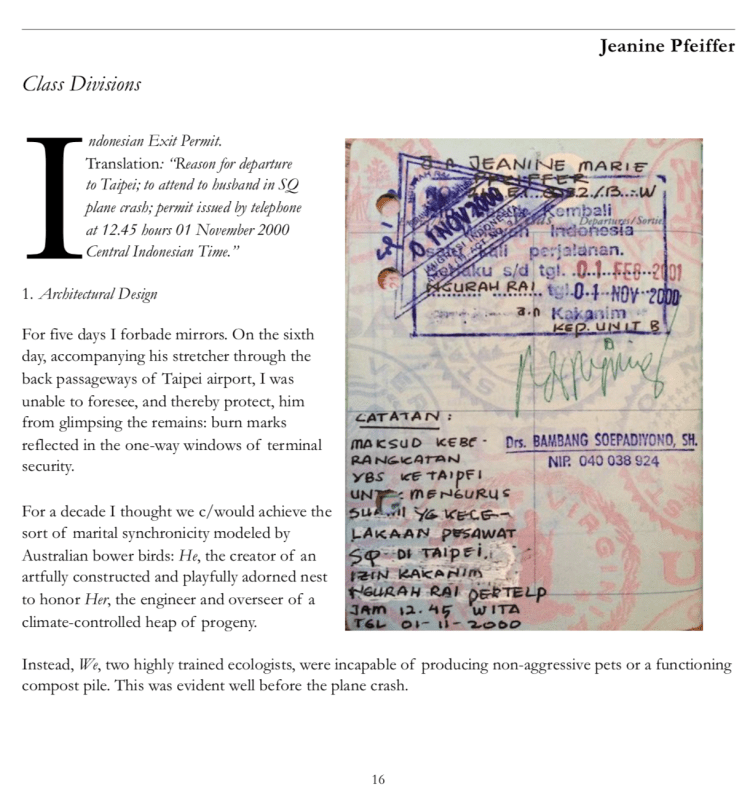 Jeanine Pfeiffer
Class Divisions
Indonesian Exit Permit.
Translation: “Reason for departure
to Taipei; to attend to husband in SQ
plane crash; permit issued by telephone
at 12.45 hours 01 November 2000
Central Indonesian Time.”
1. Architectural Design
For five days I forbade mirrors. On the sixth
day, accompanying his stretcher through the
back passageways of Taipei airport, I was
unable to foresee, and thereby protect, him
from glimpsing the remains: burn marks
reflected in the one-way windows of terminal
security.
For a decade I thought we c/would achieve the
sort of marital synchronicity modeled by
Australian bower birds: He, the creator of an
artfully constructed and playfully adorned nest
to honor Her, the engineer and overseer of a
climate-controlled heap of progeny.
JEANINE MARIE
PFEIFFER
01 NOV 2000
Kembali
Departures/Sorties
Indonesia
perjalanan.
s/d tgl. 01 FEB 2001
NGURAH RAI, tgl. 01 NOV 2000
a.n Kakanim
KEP. UNIT B
CATATAN :
MAKSUD KEBE-
RANGKATAN
YBS KE TAIPEI
MENGURUS
YG KECE-
LAKAAN PESAWAT
SQ DI TAIPEI.
IZIN KAKANIM
NGURAH RAI PERTELP
JAM 12.45 WITA
TGL 01-11-2000
Drs. BAMBANG SOEPADIYONO, SH.
NIP. 040 038 924
Instead, We, two highly trained ecologists, were incapable of producing non-aggressive pets or a functioning
compost pile. This was evident well before the plane crash.
16